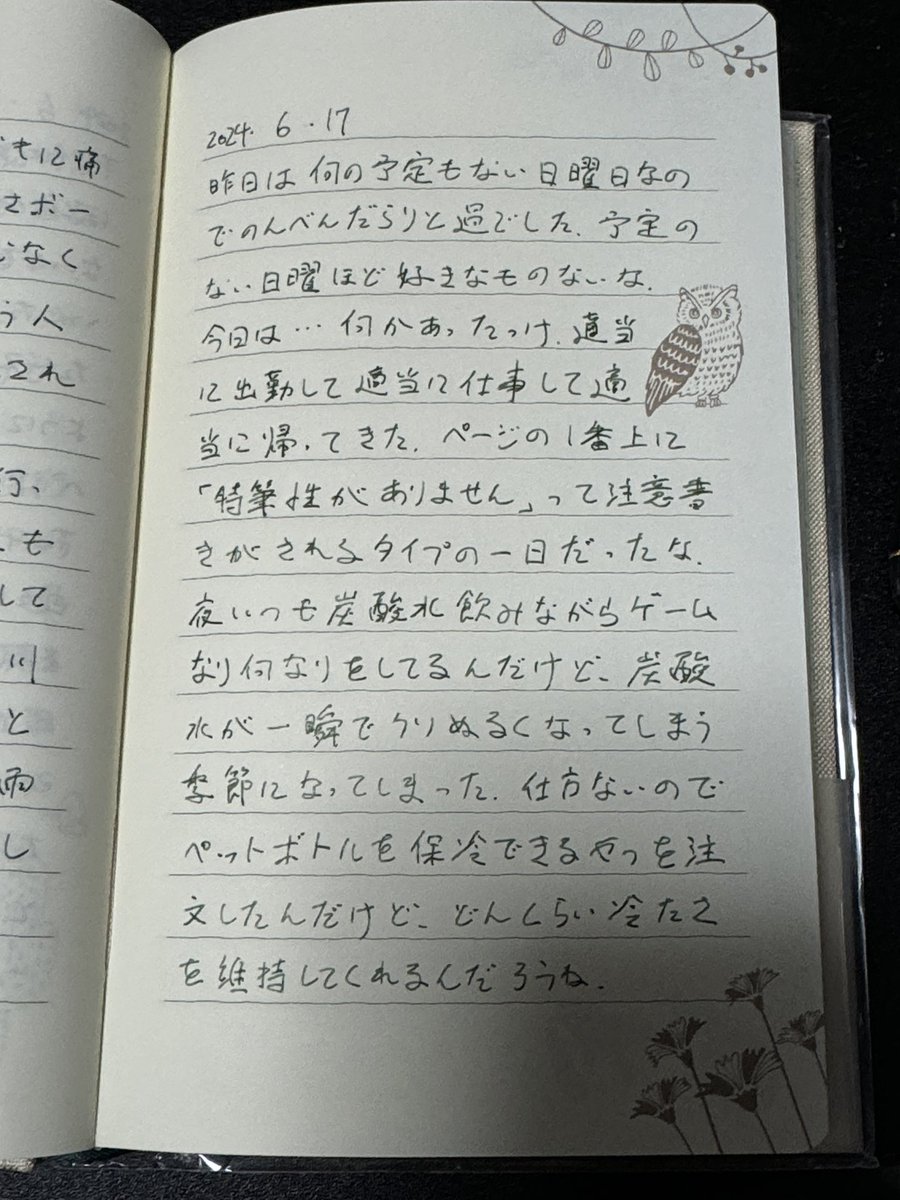 もに痛
さボー
なく
う人
され
行、
も
して
川
と
雨
し
2024. 6 . 17
昨日は何の予定もない日曜日なの
でのんべんだらりと過でした. 予定の
ない日曜ほど好きなものないな.
今日は…何かあったっけ. 適当
に出勤して適当に仕事して適
当に帰ってきた. ページの1番上に
「特筆性がありません」って注意書
きがされるタイプの一日だったな.
夜いつも炭酸水飲みながらゲーム
なり何なりをしてるんだけど、炭酸
水が一瞬でクソぬるくなってしまう
季節になってしまった. 仕方ないので
ペットボトルを保冷できるやつを注
文したんだけど、どんくらい冷たさ
を維持してくれるんだろうね.